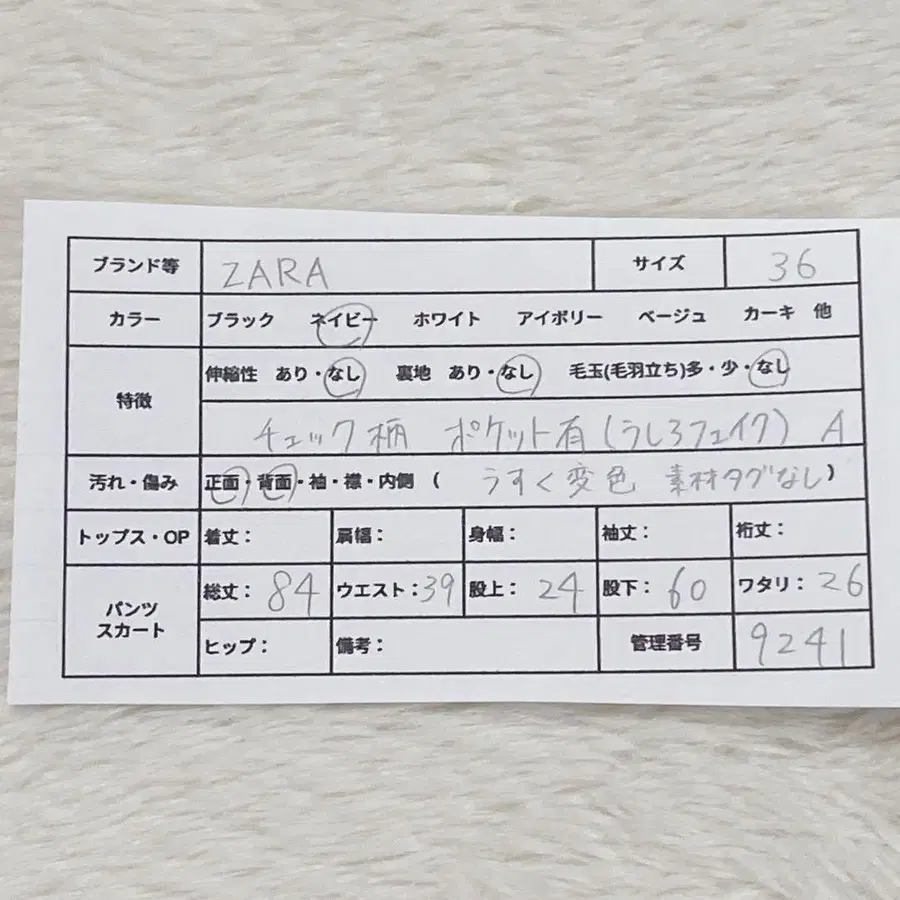 ブランド等 ZARA サイズ 36
カラー ブラック ネイビー ホワイト アイボリー ベージュ カーキ 他
特徴 伸縮性 あり・なし 裏地 あり・なし 毛玉(毛羽立ち)多・少・なし
チェック柄 ポケット有(うしろフェイク) A
汚れ・傷み 正面・背面・袖・襟・内側 ( うすく変色 素材タグなし)
トップス・OP 着丈： 肩幅： 身幅： 袖丈： 裄丈：
パンツ スカート 総丈：84 ウエスト：39 股上：24 股下：60 ワタリ：26
ヒップ： 備考： 管理番号 9241